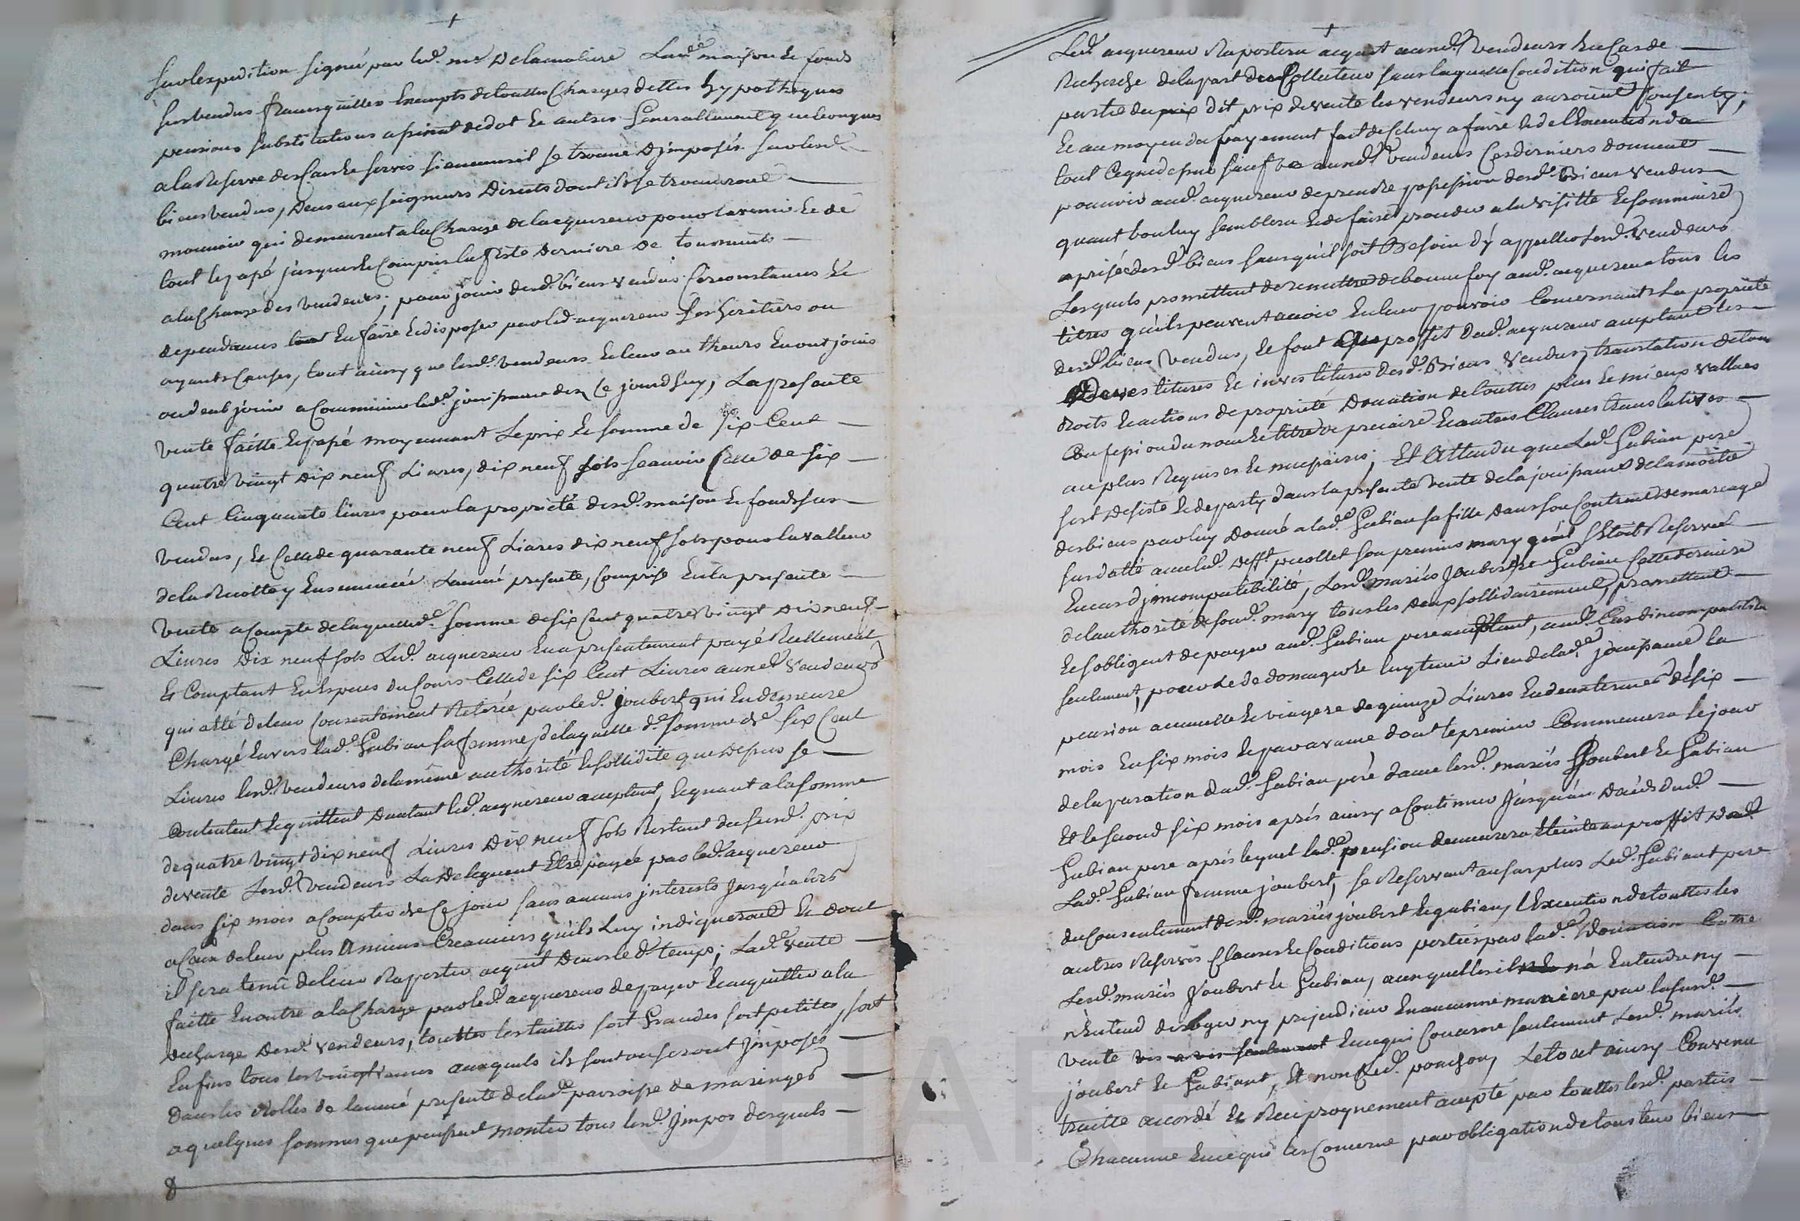 sur lexpedition signée par led. me Delamaliere Lad. maison et fonds
sus vendus francs quittes Exempts de touttes Charges dettes hypotheques
pensions substitutions de dot et autres Generallement quelconques
a la Reserve des Cens et servis si aucuns il se trouve Djmposés sur lesd.
biens vendus, Deus aux seigneurs Directs dont ils se trouveront
mouvoir qui demeurent a la Charge de lacquereur pour lavenir Et de
tout le passé jusques et Compris la feste derniere De
a la Charge des vendeurs; pour jouir desd. biens vendus Circonstances Et
dependances En faire Et disposer par led. acquereur ses heritiers ou
ayants Causes, tout ainsy que lesd. vendeurs Et leur autheurs En ont jouis
ou deub jouir a Commincer lad. jouissance dez Ce jourdhuy, La presente
vente faitte Et passé moyennant Le prix Et somme de six Cent
quatre vingt Dix neuf Livres, dix neuf sols scavoir Celle de six
Cent Cinquante livres pour la propriété desd. maison et fonds sus
vendus, Et Celle de quarante neuf Livres dix neuf sols pour la valleur
de la Recolte y Ensemencée Lannée presente, Comprise En la presente
vente a Compte de laquelle somme de six Cent quatre vingt Dix neuf
Livres Dix neuf sols Led. acquereur En a presentement payé Reellement
Et Comptant En Especes du Cours Celle de six Cent Livres auxd. vendeurs
qui a été de leur Consentement Retirée par led. joubert qui En demeure
Chargé Envers lad. Gubian sa femme, de laquelle d. somme de six Cent
Livres lesd. vendeurs de la même authorité Et sollidité que Depuis se
Contentent Et quittent Dautant led. acquereur acceptant, Et quant a la somme
de quatre vingt dix neuf Livres Dix neuf sols Restant du susd. prix
de vente Lesd. vendeurs La Deleguent Etre payée par led. acquereur
dans six mois a Compter de Ce jour sans aucuns jnterests jusqu'alors
a Ceux de leur plus Anciens Creanciers qu'ils Luy indiqueront Et dont
il sera tenû de leur Raporter acquit Dans led. temps; Lad. vente
faitte En outre a la Charge par led. acquereur de payer Et acquitter a la
decharge Desd. vendeurs, touttes les tailles soit Grandes soit petites, soit
Enfins tous les vingtiemes auxquels ils sont ou seront Jmposés
Dans les Rolles de Lannée presente de lad. paroisse de marenges
a quelques sommes que puissent monter tous lesd. Jmpos desquels
Led. acquereur Raportera acquit auxd. vendeurs En Cas de
Recherche de la part des Collecteur sans laquelle Condition qui fait
partie du prix de vente les vendeurs ny auroient Consenty;
Et au moyen du payement fait de Celuy a faire Et de l'Execution de
tout Ce que dessus sauf auxd. vendeurs Ces derniers donnent
pouvoir aud. acquereur de prendre possession desd. Biens vendus
quant bon luy semblera Et de faire proceder a la visitte Et sommaire
aprisée desd. biens sans qu'il soit Besoin d'y appeller Lesd. vendeurs
Lesquels promettent de remettre de bonne foy aud. acquereur tous les
titres qu'ils peuvent avoir En leur pouvoir Concernants La propriété
desd. biens vendus, Et font au proffit dud. acquereur acceptant les
Devestitures Et investitures desd. Biens vendus, translation de tous
droits Et actions de propriété Donation de touttes plus Et mieux vallues
Confession du nom Et titre de precaire Et autres Clauses translatives
au plus Requises Et necessaires; Et Attendu que Led. Gubian pere
s'est Desisté Et departy dans la presente vente de la jouissance de la moitié
des biens par luy Donné a lad. Gubian sa fille dans son Contract de mariage
sus datté avec led. defft. premier mary qu'il s'étoit Reservé
En cas d'jncompatibilité, Lesd. mariés Joubert Et Gubian Cette derniere
de lauthorité de sond. mary tous les Deux sollidairement, promettent
Et s'obligent de payer aud. Gubian pere acceptant, aud. Cas d'incompatibilité
seulement, pour Et de luy tenir Lieu de lad. jouissance La
pension annuelle Et viagere de quinze Livres En deux termes de six
mois En six mois Et par avance dont le premier Commencera le jour
de la separation dud. Gubian peré davec lesd. mariés Joubert Et Gubian
Et le second six mois aprés ainsy a Continuer Jusqu'au Décés dud.
Gubian pere aprés lequel lad. pension demeurera Eteinte au proffit de
Lad. Gubian femme joubert, se Reservant au surplus Led. Gubiant pere
du Consentement desd. mariés joubert Et gubian, l'Execution de touttes les
autres Reserves Clauses Et Conditions portées par lad. Donation Entre
Lesd. mariés Joubert Et Gubian, auxquelles il n'a Entendu ny
n'Entend deroger ny prejudicier En aucunne maniere par la susd.
vente En ce qui Concerne seulement Lesd. mariés
joubert Et Gubiant, Et non Led. ponchon, Le tout ainsy Convenu
traitté accordé Et Reciproquement accepté par touttes lesd. parties
Chacunne En ce qui les Concerne par obligation de tous leur biens